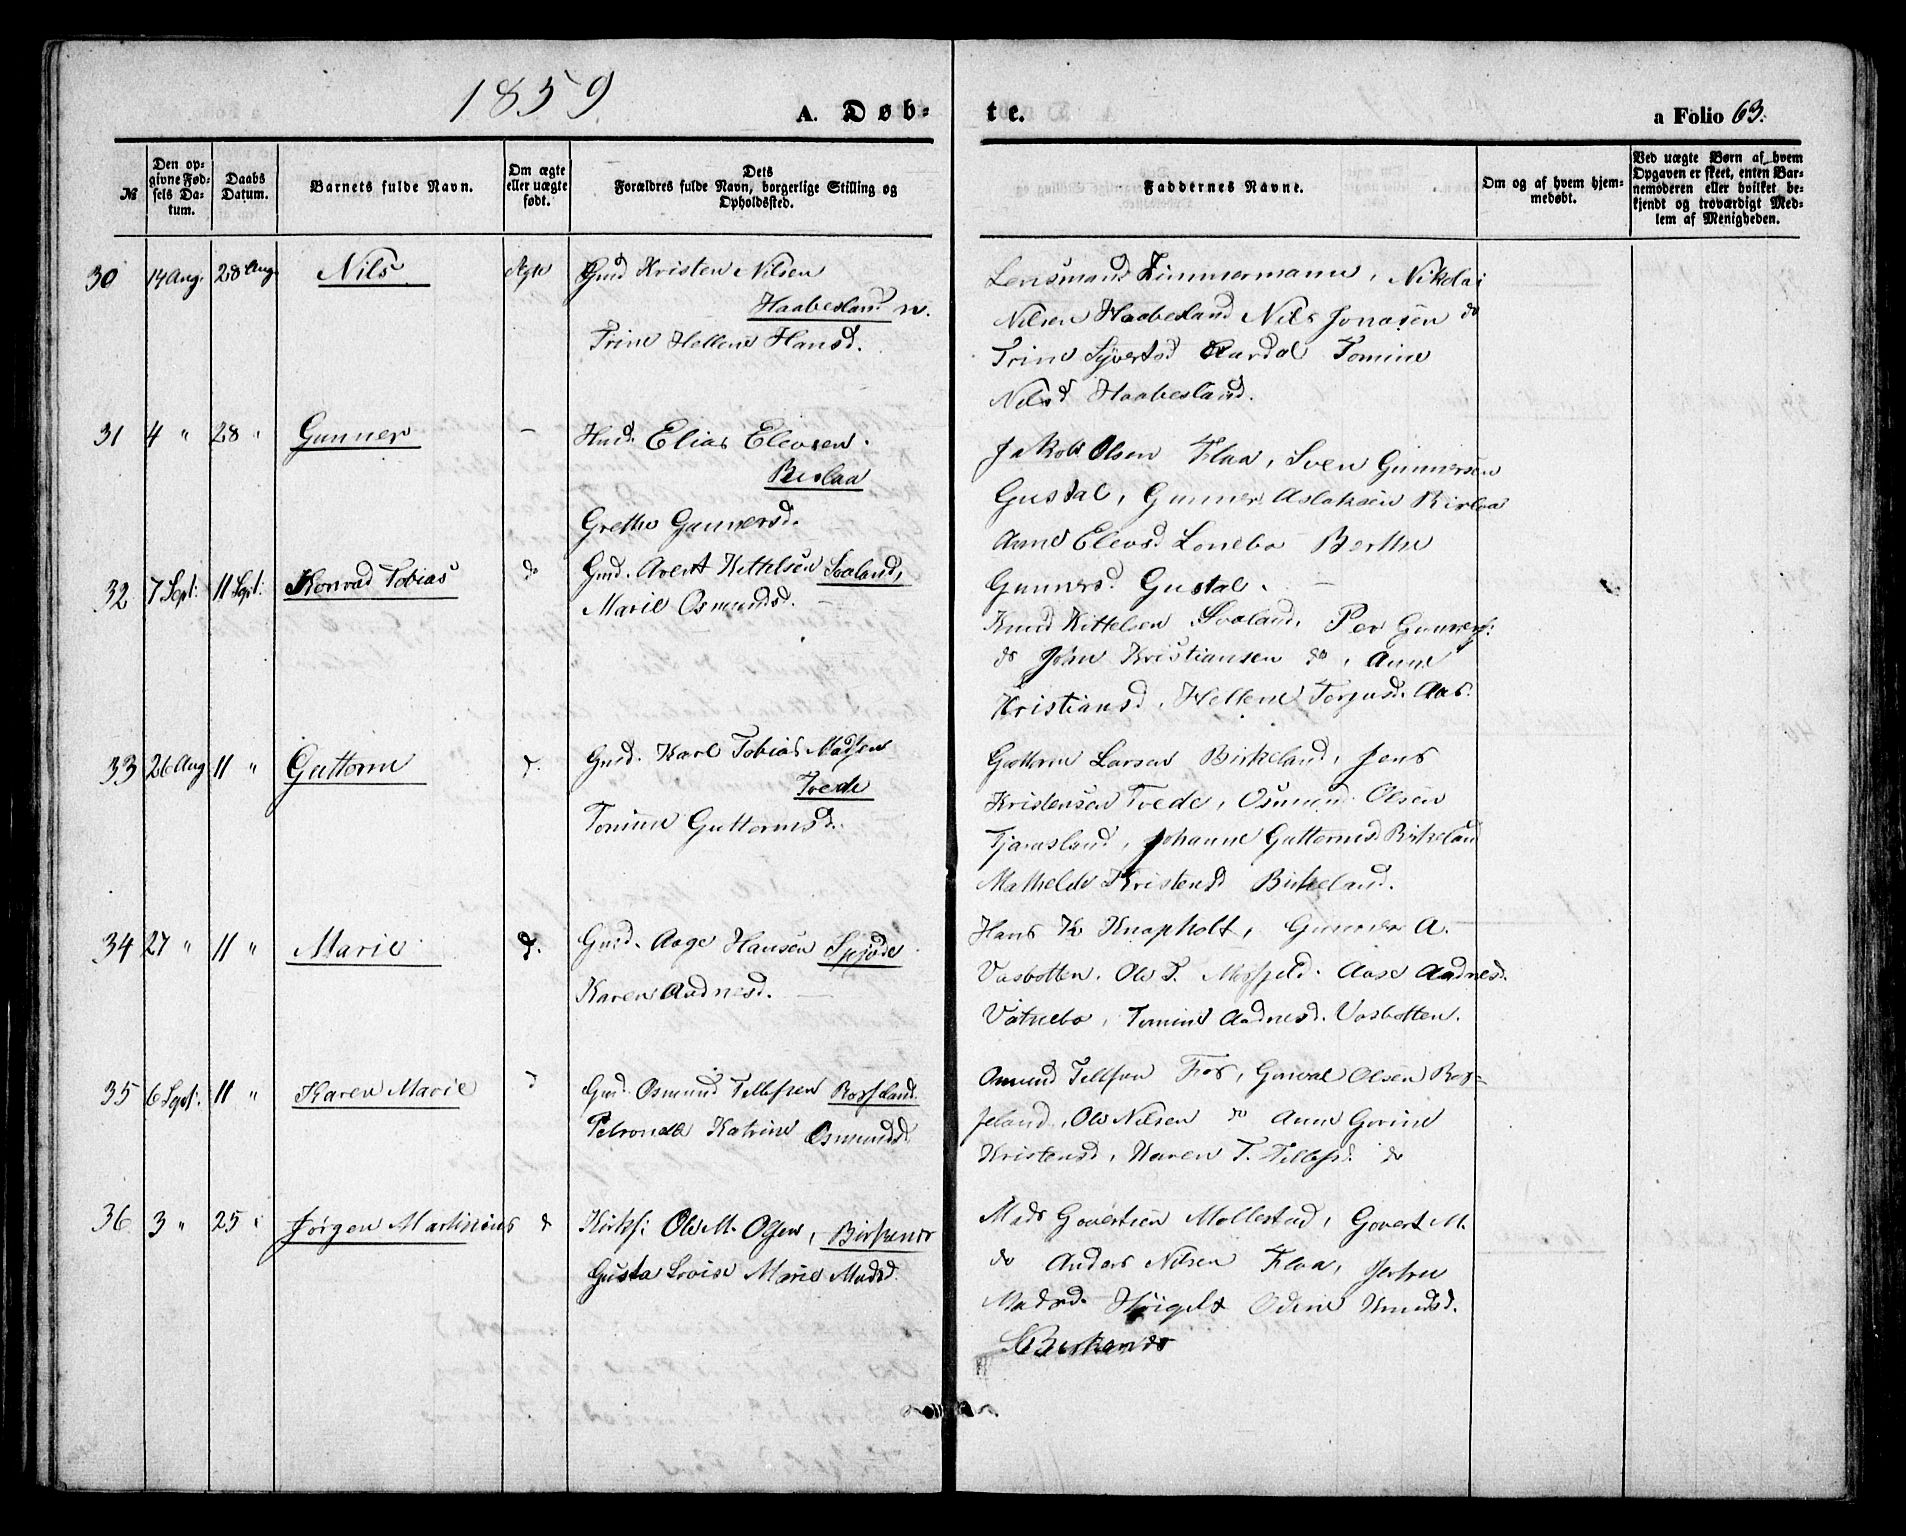 1859
A. Døb-
te.
a Folio 63.
№
Den op-
givne Fød-
sels Da-
tum.
Daabs
Datum.
Barnets fulde Navn.
Om ægte
eller uægte
født.
Dets
Forældres fulde Navn, borgerlige Stilling og
Opholdssted.
Faddernes Navne.
Om og af hvem hjem-
medøbt.
Ved uægte Børn af hvem
Opgaven er skeet, enten Bar-
nemoderen eller hvilket be-
kjendt og troværdigt Med-
lem af Menigheden.
30 14 Aug. 28 Aug. Nils Ægte Gmd Kristen Nilsen
Haabesland
Trine Hellene Hansd.
Lensmand Zimmermann, Nikolai
Nilsen Haabesland Nils Jonasen do
Trine Syvertsd Aardal Tomine
Nilsd Haabesland.
31 4 " 28 " Gunner – Huusm. Elias Elevsen
Beslaa
Grethe Gunnersd.
Jakob Olsen Flaa, Sven Gunnersen
Gustal, Gunner Aslaksen Birlaa
Anne Elevsd Lonebo Berthe
Gunnersd. Gustal. –
32 7 Sept: 11 Sept: Konrad Tobias do Gmd. Avert Kittelsen Soaland,
Marie Osmundsd. –
Knud Kittelsen Soaland, Per Gunners:
do John Kristiansen do, Anne
Kristiansd, Hellene Terjusd. Aas.
33 26 Aug 11 " Guttorm d. Gmd. Karl Tobias Madsen
Tvede
Tomine Guttormsd.
Guttorm Larsen Birkeland, Jens
Kristensen Tvede, Osmund Olsen
Tjaraasland, Johanne Guttormsd Birkeland
Mathilde Kristensd Birkeland.
34 27 " 11 " Marie d. Gmd. Aage Hansen Spjode
Karen Aadnesd. –
Hans K Knapholt, Gunner A.
Vasbotten. Ole T. Mosfjeld. Aase Aadnesd.
Vatnebo, Tomine Aadnesd. Vasbotten.
35 6 Sept: 11 " Karen Marie d Gmd. Osmund Tellefsen Rosseland.
Petronelle Katrine Osmundsd.
Omund Tellefsen Fos, Gunval Olsen Ros-
seland, Ole Nilsen do Anne Gurine
Kristensd, Karen T. Tellefsd. do
36 3 " 25 " Jørgen Martinius d Kirks: Ole M. Olsen, Birkenes
Gusta Lovise Marie Madsd.
Mads Govertsen Mollestad, Govert M.
do Anders Nilsen Flaa,
Madsd. Höigelt Odine Knudsd.
Birkenes